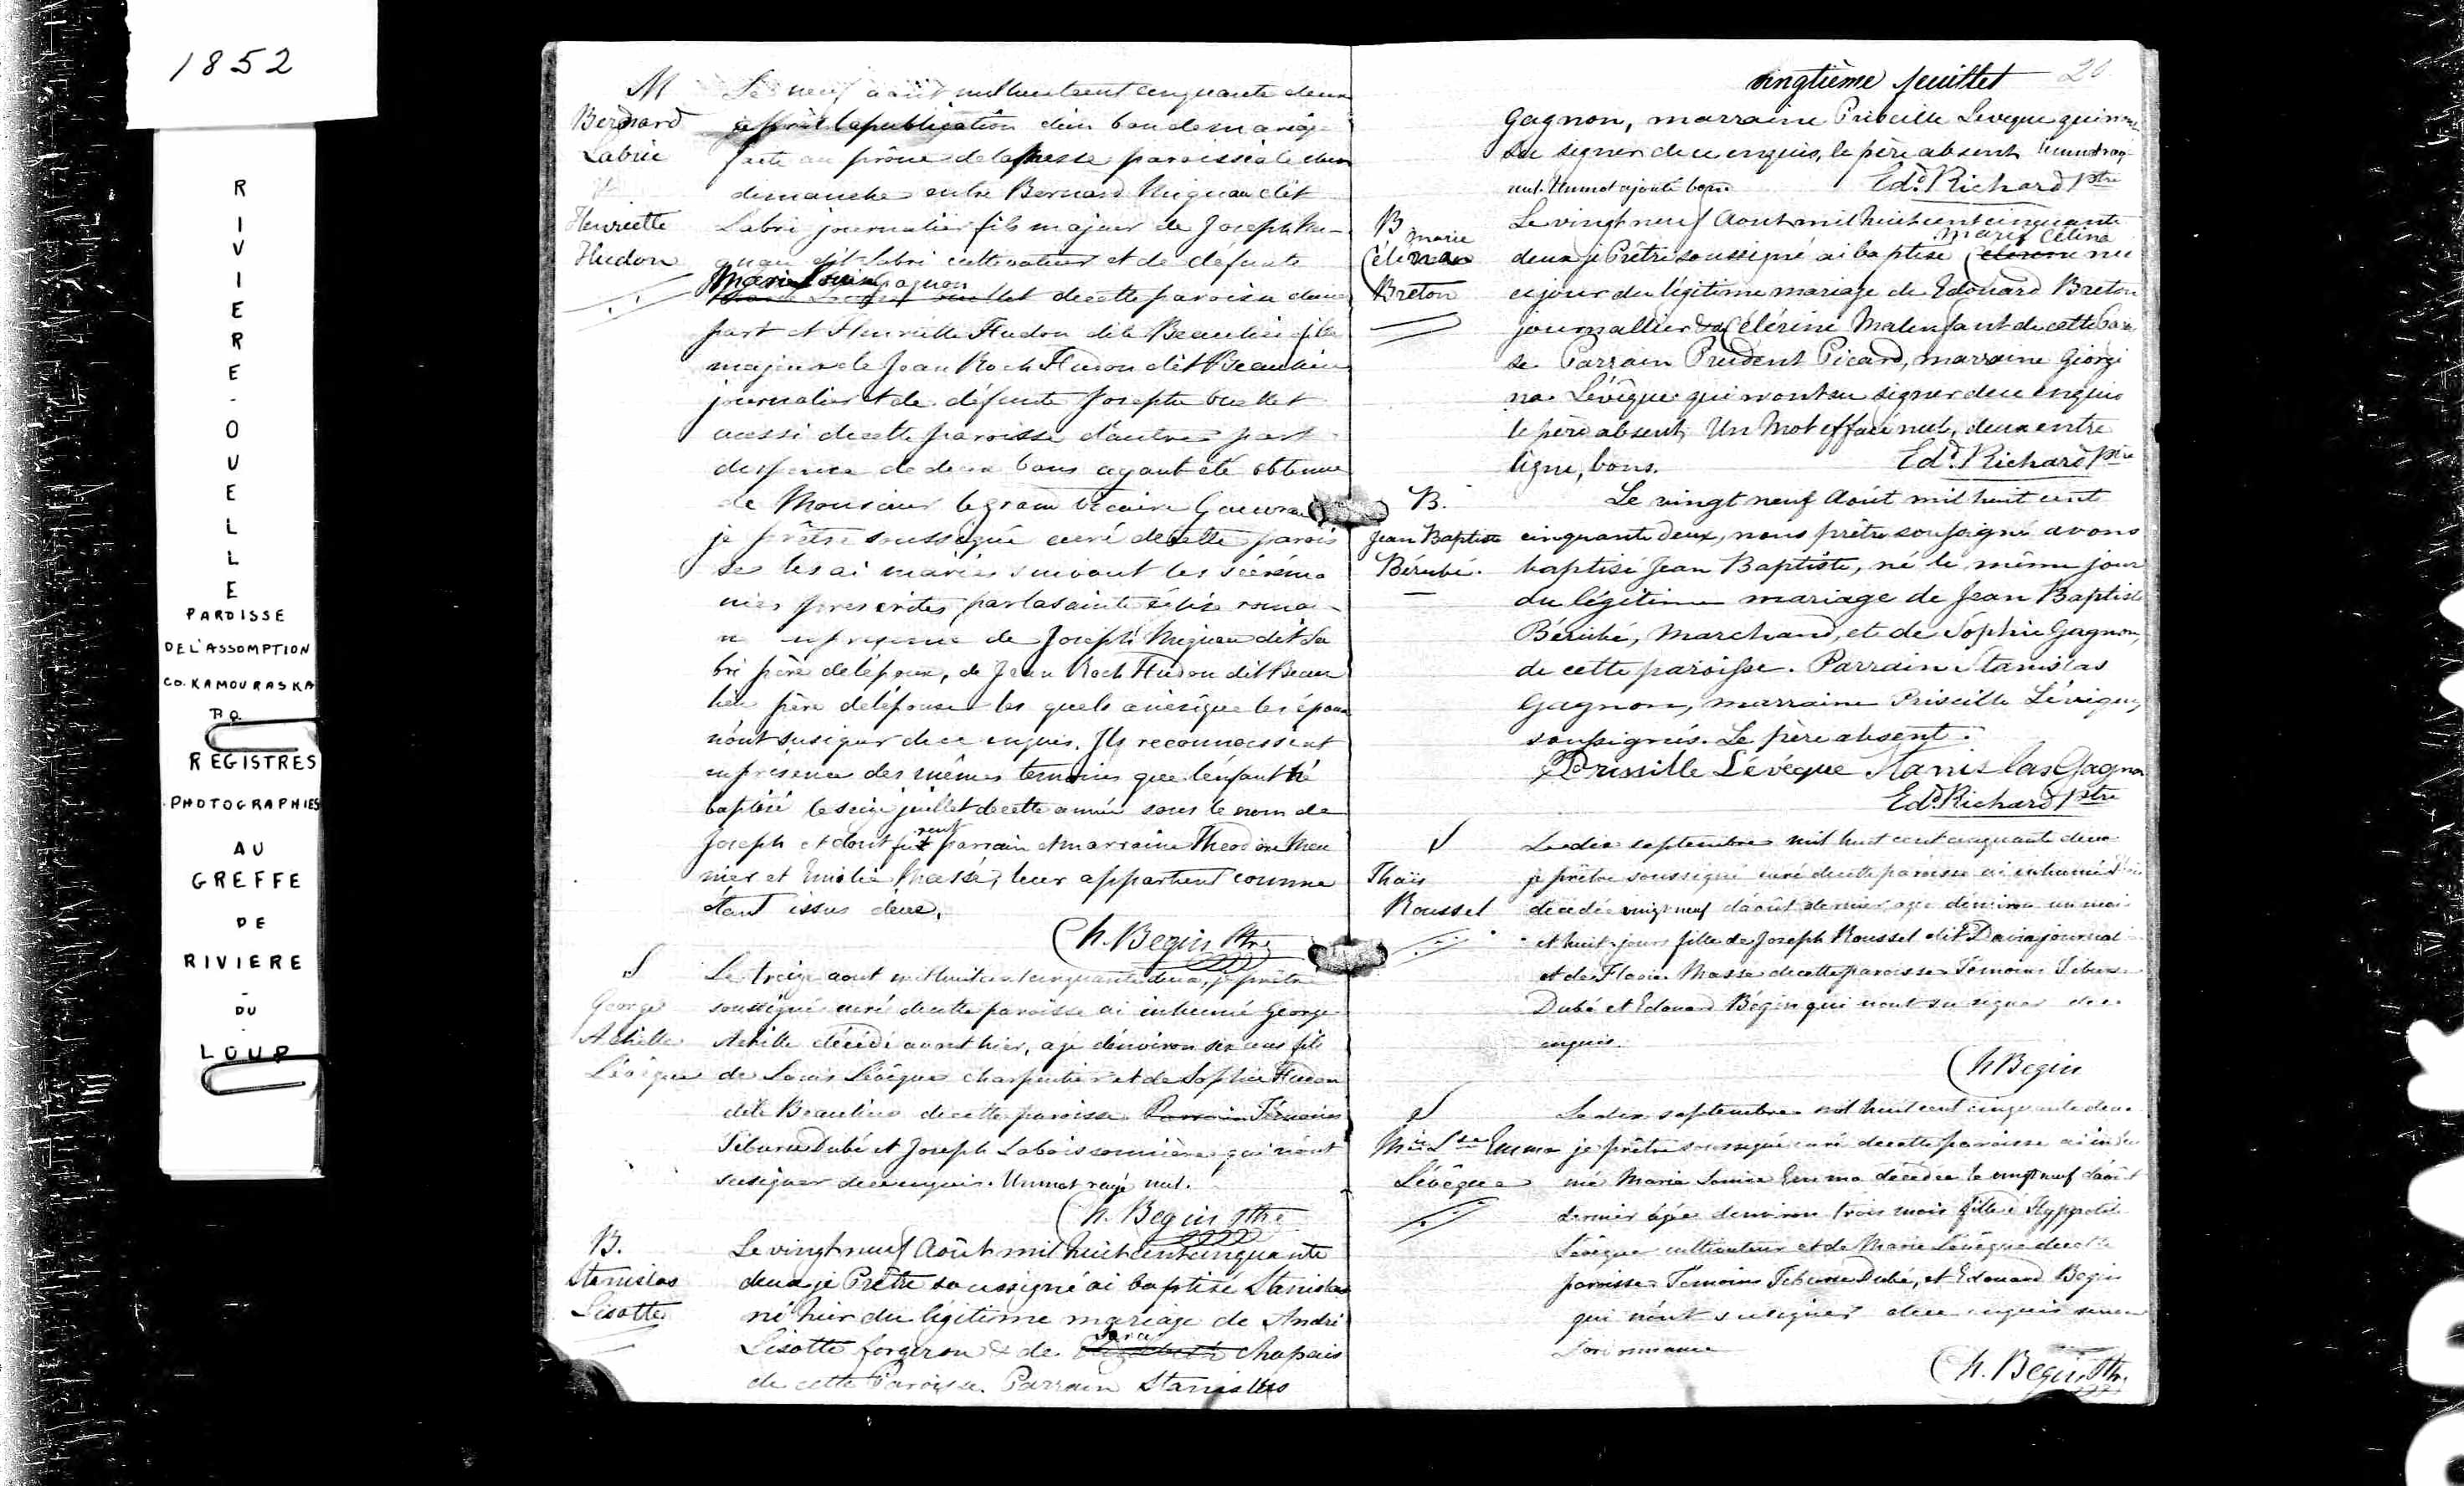 1852
RIVIERE-OUELLE
PAROISSE
DE L'ASSOMPTION
CO. KAMOURASKA
P.Q.
REGISTRES
PHOTOGRAPHIES
AU
GREFFE
DE
RIVIERE
-
DU
-
LOUP
M
Bernard
Labrie
&
Henriette
Hudon
Le neuf août mil huit cent cinquante deux
après la publication d'un ban de mariage
faite au prône de la Messe paroissiale d'un
dimanche entre Bernard Mignau dit
Labri journalier fils majeur de Joseph Mi-
gnau dit Labri cultivateur et de défunte
Marie Louise Gagnon
de cette paroisse d'une
part et Henriette Hudon dite Beaulieu fille
majeure de Jean Roch Hudon dit Beaulieu
journalier et de défunte Josephte Ouellet
aussi de cette paroisse d'autre part
dispense de deux bans ayant été obtenue
de Monsieur le grand vicaire
je prêtre soussigné curé de cette parois
se les ai mariés suivant les cérémo
nies prescrites par la sainte église romai-
ne en présence de Joseph Mignau dit La
bri père de l'époux, de Jean Roch Hudon dit Beau
lieu père de l'épouse les quels ainsi que les époux
n'ont su signer de ce enquis. Ils reconnoissent
en présence des mêmes temoins que l'enfant né
baptisé le seize juillet de cette année sous le nom de
rent
Joseph et dont fut parrain et marraine Théodore Meu
nier et Emélie Massé, leur appartient comme
étant issus d'eux.
Ch. Begin Ptre
S
George
Achille
Lévêque
Le treize aout mil huit cent cinquante deux, je prêtre
soussigné curé de cette paroisse ai inhumé George
Achille décédé avant hier, agé d'environ six ans fils
de Louis Lévêque charpentier et de Sophie Hudon
dite Beaulieu de cette paroisse. Parrain Témoins
Tiburce Dubé et Joseph Laboissonnière qui n'ont
su signer de ce enquis. Un mot rayé nul.
Ch. Begin Ptre
B.
Stanislas
Lisotte
Le vingt neuf Août mil huit cent cinquante
deux je Prêtre soussigné ai baptisé Stanislas
né hier du légitime mariage de André
Sara
Lisotte forgeron & de Elizabeth Chapais
de cette Paroisse. Parrain Stanislas
vingtième feuillet 20
Gagnon, marraine Priscille Leveque qui n'ont
su signer de ce enquis, le père absent. Un mot rayé
nul. Un mot ajouté bon. Edd. Richard Ptre
B
marie
Célina
Breton
Le vingt neuf Aout mil huit cent cinquante
marie Célina
deux je Prêtre soussigné ai baptisé née
ce jour du légitime mariage de Edouard Breton
journallier & de Célérine Malenfant de cette Parois
se. Parrain Prudent Picard, marraine Giorgi
na Lévêque qui n'ont su signer de ce enquis
le père absent. Un Mot effacé nul, deux entre
ligne, bons. Edd. Richard Ptre
B.
Jean Baptiste
Bérubé.
Le vingt neuf Août mil huit cent
cinquante deux, nous prêtre soussigné avons
baptisé Jean Baptiste, né le même jour
du légitime mariage de Jean Baptiste
Bérubé, Marchand, et de Sophie Gagnon,
de cette paroisse. Parrain Stanislas
Gagnon, marraine Priscille Lévêque,
soussignés. Le père absent.
Prissille Lévéque Stanislas Gagnon
Edd. Richard Ptre
S
Thaïs
Roussel
Le dix septembre mil huit cent cinquante deux
je prêtre soussigné curé de cette paroisse ai inhumé
décédée vingt neuf d'août dernier, agée d'environ un mois
et huit jours fille de Joseph Roussel dit journal
et de Flavie Massé de cette paroisse. Témoins Tiburce
Dubé et Edouard Bégin qui n'ont su signer de ce
enquis.
Ch Begin
S
Mie Lse Emma
Lévêque
Le dix septembre mil huit cent cinquante deux
je prêtre soussigné curé de cette paroisse ai inhu
mé Marie Louise Emma décédée le vingt neuf d'août
dernier agée d'environ trois mois fille d'Hyppolite
Lévêque cultivateur et de Marie Lévêque de cette
paroisse. Témoins Tiburse Dubé, et Edouard Begin
qui n'ont su signer de ce enquis suivant
l'ordonnance
Ch. Begin Ptr.